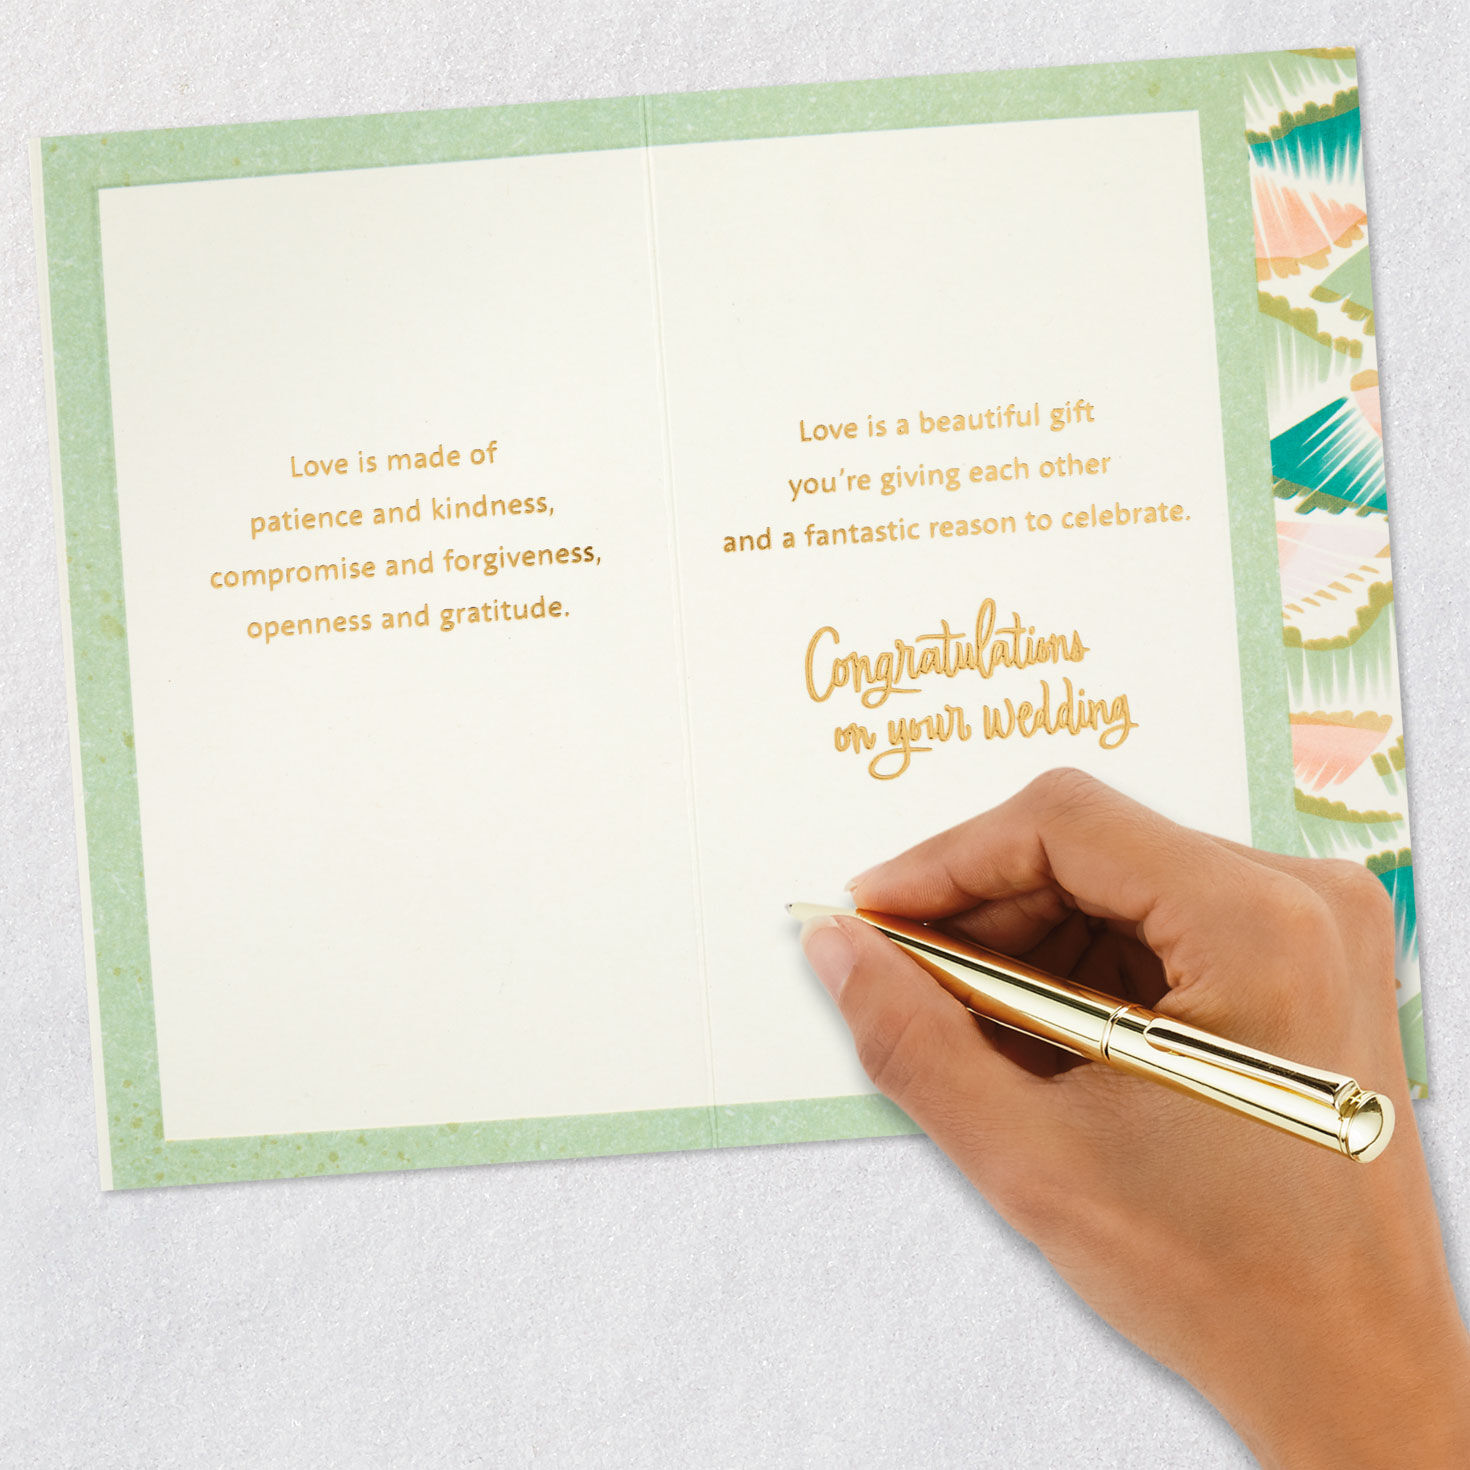 Love is made of
patience and kindness,
compromise and forgiveness,
openness and gratitude.
Love is a beautiful gift
you're giving each other
and a fantastic reason to celebrate.
Congratulations
on your wedding